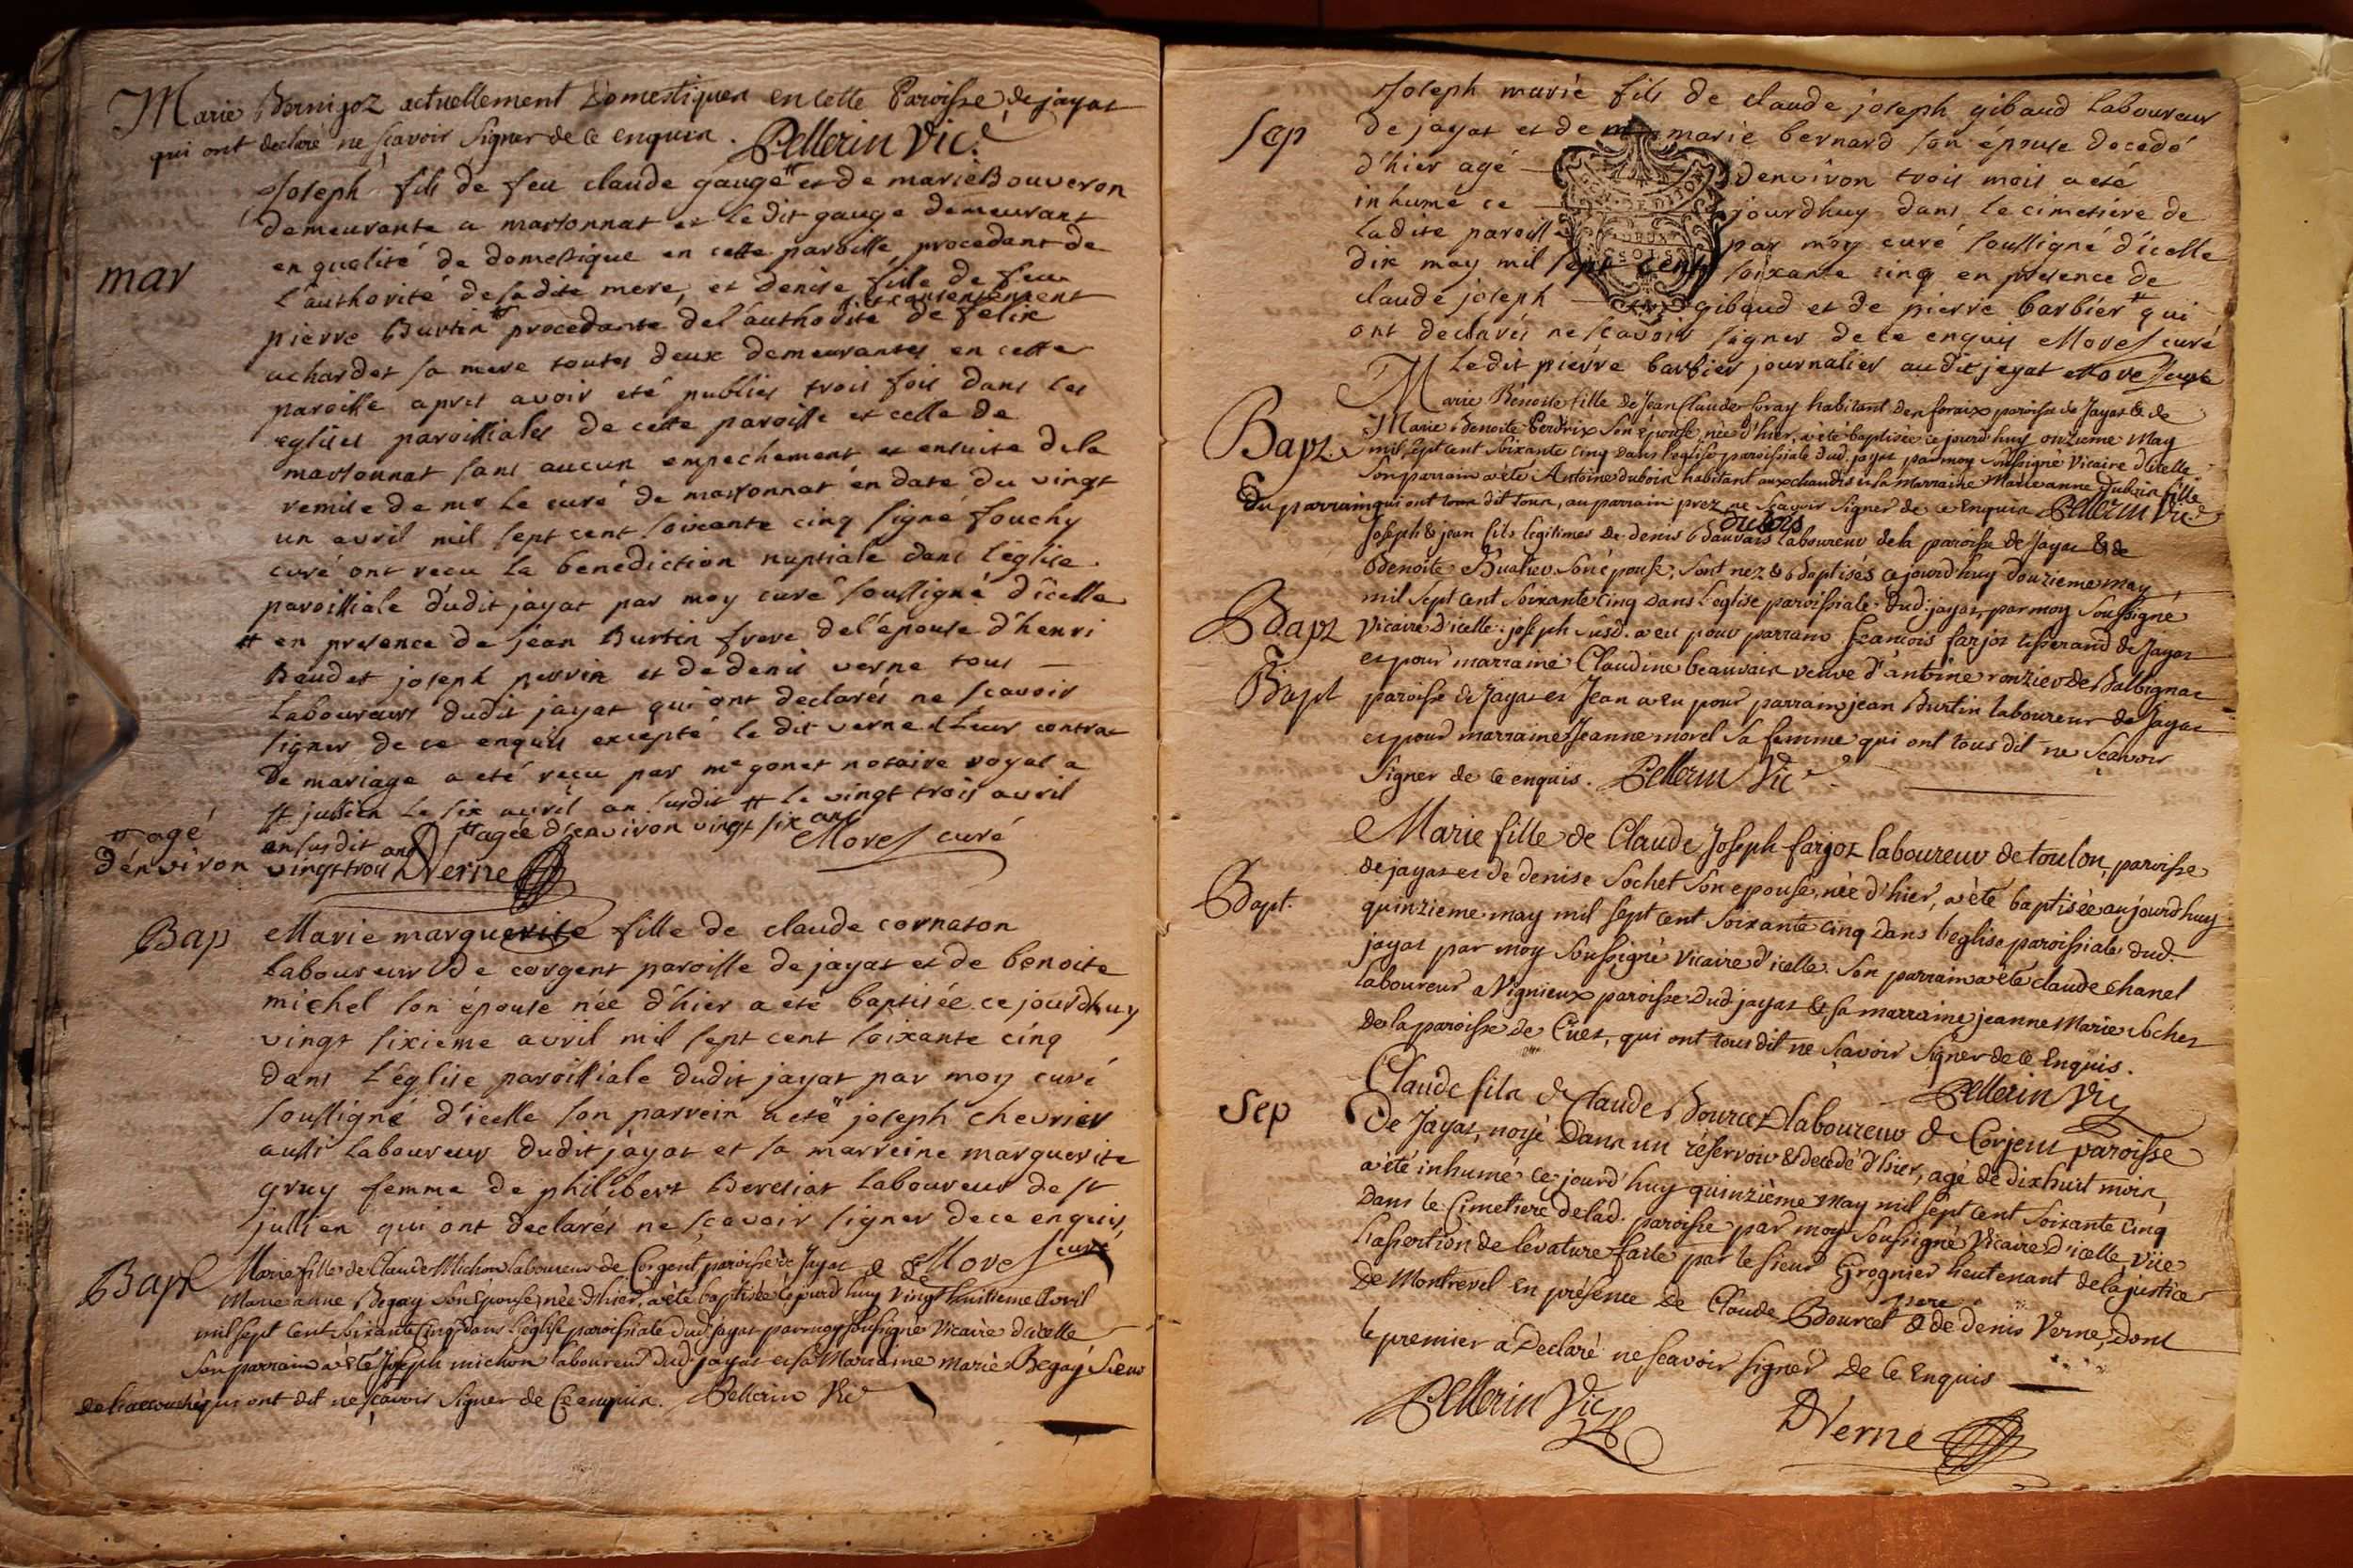 Marie Bernigoz actuellement Domestiques en cette Paroisse de jayat
qui ont declaré ne sçavoir signer de ce enquis. Pellerin Vic.
mar
Joseph fils de feu claude gauge # et de marie Bouveron
demeurante a marsonnat et le dit gauge demeurant
en qualité de domestique en cette paroisse, procedant de
l'authorité de sadite mere, et denise fille de feu
pierre Burtin # procedante de l'authorité et consentement de felix
uchardet sa mere toutes deux demeurantes en cette
paroisse apres avoir eté publies trois fois dans les
eglises paroissiales de cette paroisse et celle de
marsonnat sans aucun empechement et ensuite de la
remise de mr le curé de marsonnat en date du vingt
un avril mil sept cent soixante cinq signé fouchy
curé ont reçu la benediction nuptiale dans l'église
paroissiale dudit jayat par moy curé soussigné d'icelle
# en presence de jean Burtin frere de l'épouse d'henri
Beudet joseph perrin et de denis verne tous
laboureurs dudit jayat qui ont declarés ne sçavoir
signer de ce enquis excepté le dit verne # leur contrac
de mariage a eté reçu par me gonet notaire royal a
st jullien le six avril an susdit # le vingt trois avril
an susdit # agée d'environ vingt six ans
# agé
d'environ vingt trois ans DVerne Morel curé
Bap
Marie marguerite fille de claude cornaton
laboureur de corgent paroisse de jayat et de benoite
michel son épouse née d'hier a eté baptisée ce jourdhuy
vingt sixieme avril mil sept cent soixante cinq
dans l'église paroissiale dudit jayat par moy curé
soussigné d'icelle son parrein a eté joseph chevrier
aussi laboureur dudit jayat et sa marreine marguerite
gruy femme de philibert Beresiat laboureur de st
jullien qui ont declarés ne sçavoir signer de ce enquis
Morel curé
Bapt
Marie fille de Claude Michon laboureur de Corgent paroisse de Jayat & de
Marie anne Begay son épouse, née d'hier, a été baptisée ce jourd'huy vingt huitieme Avril
mil sept cent soixante cinq dans l'église paroissiale dud. jayat par moy soussigné Vicaire d'icelle
son parrain a été Joseph michon laboureur dud. jayat et sa Marraine marie Begay sœur
de l'accouchée qui ont dit ne sçavoir signer de ce enquis. Pellerin Vic
Sep
Joseph marie fils de claude joseph gibaud laboureur
de jayat et de marie bernard son épouse decedé
d'hier agé denviron trois mois a eté
inhumé ce jourdhuy dans le cimetiere de
ladite paroisse par moy curé soussigné d'icelle
dix may mil sept cent soixante cinq en presence de
claude joseph gibaud et de pierre barbier # qui
ont declarés ne sçavoir signer de ce enquis Morel curé
# Le dit pierre barbier journalier audit jayat Morel curé
Bapt.
Marie Benoite fille de Jean Claude foray habitant den foraix paroisse de Jayat & de
Marie Benoite Perdrix son épouse née d'hier, a été baptisée ce jourd'huy onzieme May
mil sept cent soixante cinq dans l'église paroissiale dud. jayat par moy soussigné Vicaire d'icelle
son parrain a été Antoine dubois habitant aux chandis et sa Marraine Marie anne dubois fille
du parrain qui ont tous dit ne sçavoir signer de ce Enquis Pellerin Vic.
Bapt
Joseph & jean fils legitimes de denis beauvais dubois laboureur de la paroisse de Jayat & de
Benoite Buatier son épouse, sont nez & Baptisés ce jourd'huy douzieme may
mil sept cent soixante cinq dans l'eglise paroissiale dud. jayat, par moy soussigné
Vicaire d'icelle. joseph susd. a eu pour parrain francois farjot tisserand de Jayat
et pour marraine Claudine beauvais veuve d'antoine ronzier de Balbignat
Bapt
paroisse de Jayat et Jean a eu pour parrain jean Burtin laboureur de Jayat
et pour marraine Jeanne morel sa femme qui ont tous dit ne sçavoir
signer de ce enquis. Pellerin Vic
Bapt.
Marie fille de Claude Joseph farjot laboureur de toulon, paroisse
de jayat et de denise Sochet son epouse, née d'hier, a été baptisée aujourd'huy
quinzieme may mil sept cent soixante cinq dans l'eglise paroissiale dud.
jayat par moy soussigné Vicaire d'icelle. son parrain a été claude Chanel
laboureur a Vignieux paroisse dud. jayat & sa marraine jeanne Marie Sochet
de la paroisse de Cuet, qui ont tous dit ne sçavoir signer de ce enquis.
Pellerin Vic
Sep
Claude fils de Claude Bourcet laboureur de Corjent paroisse
de Jayat, noyé dans un réservoir & decedé d'hier, agé de dixhuit mois,
a été inhumé ce jourd'huy quinzième may mil sept cent soixante cinq
dans le Cimetiere de lad. paroisse par moy soussigné Vicaire d'icelle, vüe
l'assertion de levature faite par le sieur Grognier lieutenant de la justice
de Montrevel en présence de Claude Bourcet pere & de denis Verne, dont
le premier a declaré ne scavoir signer de ce Enquis
Pellerin Vic DVerne